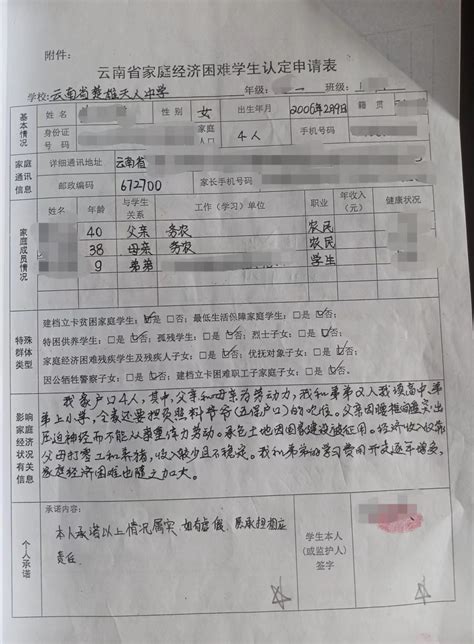 附件：
云南省家庭经济困难学生认定申请表
学校：云南省楚雄天人中学 年级： 班级：
基本情况 姓名 性别 女 出生年月 2006年2月9日 籍贯
身份证号码 家庭人口 4人 手机号码
家庭通讯信息 详细通讯地址 云南省
邮政编码 672700 家长手机号码
家庭成员情况 姓名 年龄 与学生关系 工作（学习）单位 职业 年收入（元） 健康状况
40 父亲 务农 农民
38 母亲 务农 农民
9 弟弟 学生
特殊群体类型 建档立卡贫困家庭学生：☑是 □否； 最低生活保障家庭学生：□是 ☑否；
特困供养学生：□是 ☑否； 孤残学生：□是 ☑否； 烈士子女：□是 ☑否；
家庭经济困难残疾学生及残疾人子女：□是 ☑否； 优抚对象子女：□是 ☑否；
因公牺牲警察子女：□是 ☑否； 建档立卡困难职工子女家庭子女：□是 ☑否。
影响家庭经济状况有关信息
我家户口4人，其中，父亲和母亲为劳动力，我和弟弟又人我读高中，弟
弟上小学，全家还要担负照料爷爷（五保户口）的吃住。父亲因腰椎间盘突出
压迫神经而不能从事重体力劳动。承包土地因国家建设被征用。经济收入仅靠
父母打零工和养猪，收入较少且不稳定。我和弟弟的学习费用开支逐年增多，
家庭经济困难也随之加大。
个人承诺 承诺内容：
本人承诺以上情况属实，如有虚假，愿承担相应
责任。
学生本人
（或监护人）
签字